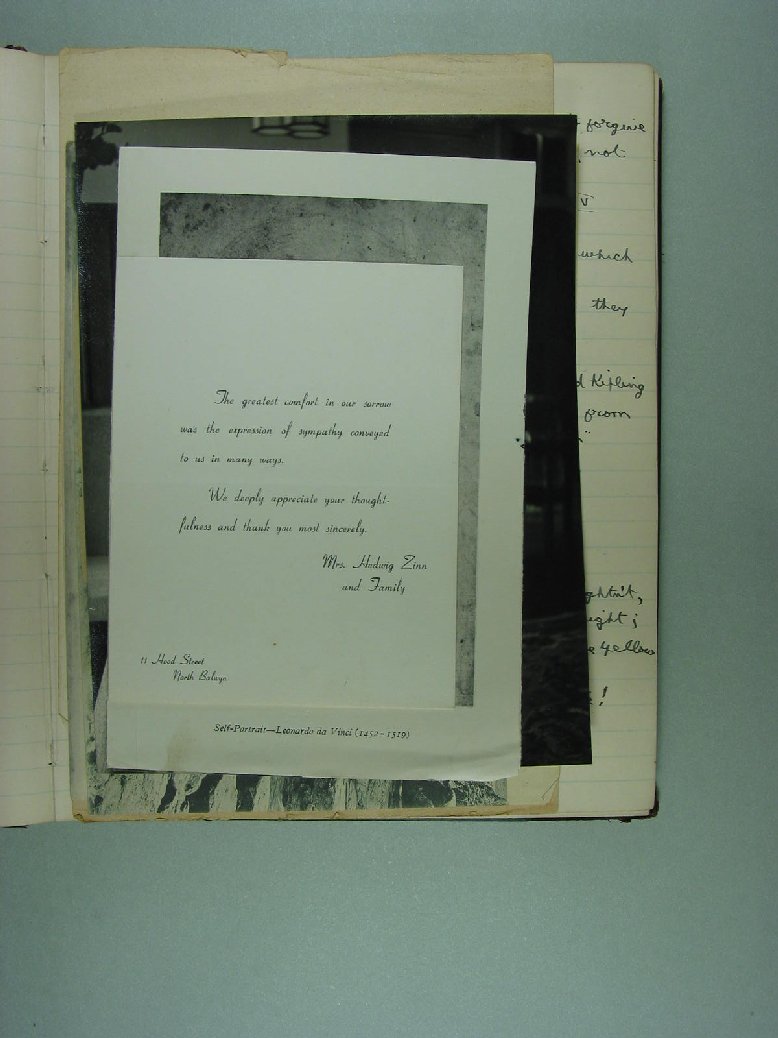 The greatest comfort in our sorrow
was the expression of sympathy conveyed
to us in many ways.
We deeply appreciate your thought-
fulness and thank you most sincerely.
Mrs. Hedwig Zinn
and Family
11 Hood Street
North Balwyn
Self-Portrait—Leonardo da Vinci (1452-1519)
forgive
not
V
which
they
Kipling
poem
ghtn't,
ight;
yellow
!